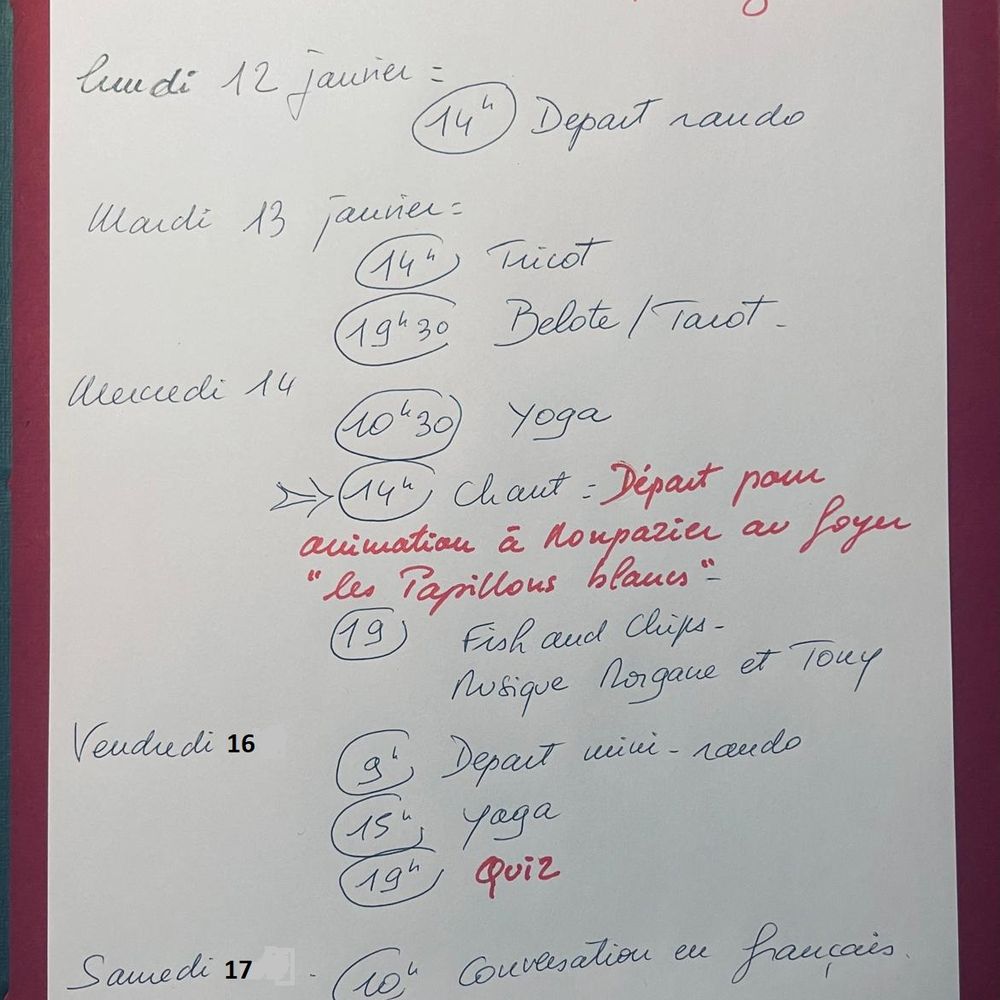 lundi 12 janvier =
14h Depart rando
Mardi 13 janvier =
14h Tricot
19h30 Belote / Tarot -
Mercredi 14
10h30 Yoga
⇒ 14h Chant = Départ pour
animation à Monpazier au foyer
"les Papillons blancs" -
19 Fish and Chips -
Musique Morgane et Tony
Vendredi 16
9h Depart mini-rando
15h Yoga
19h Quiz
Samedi 17 - 10h Conversation en français.